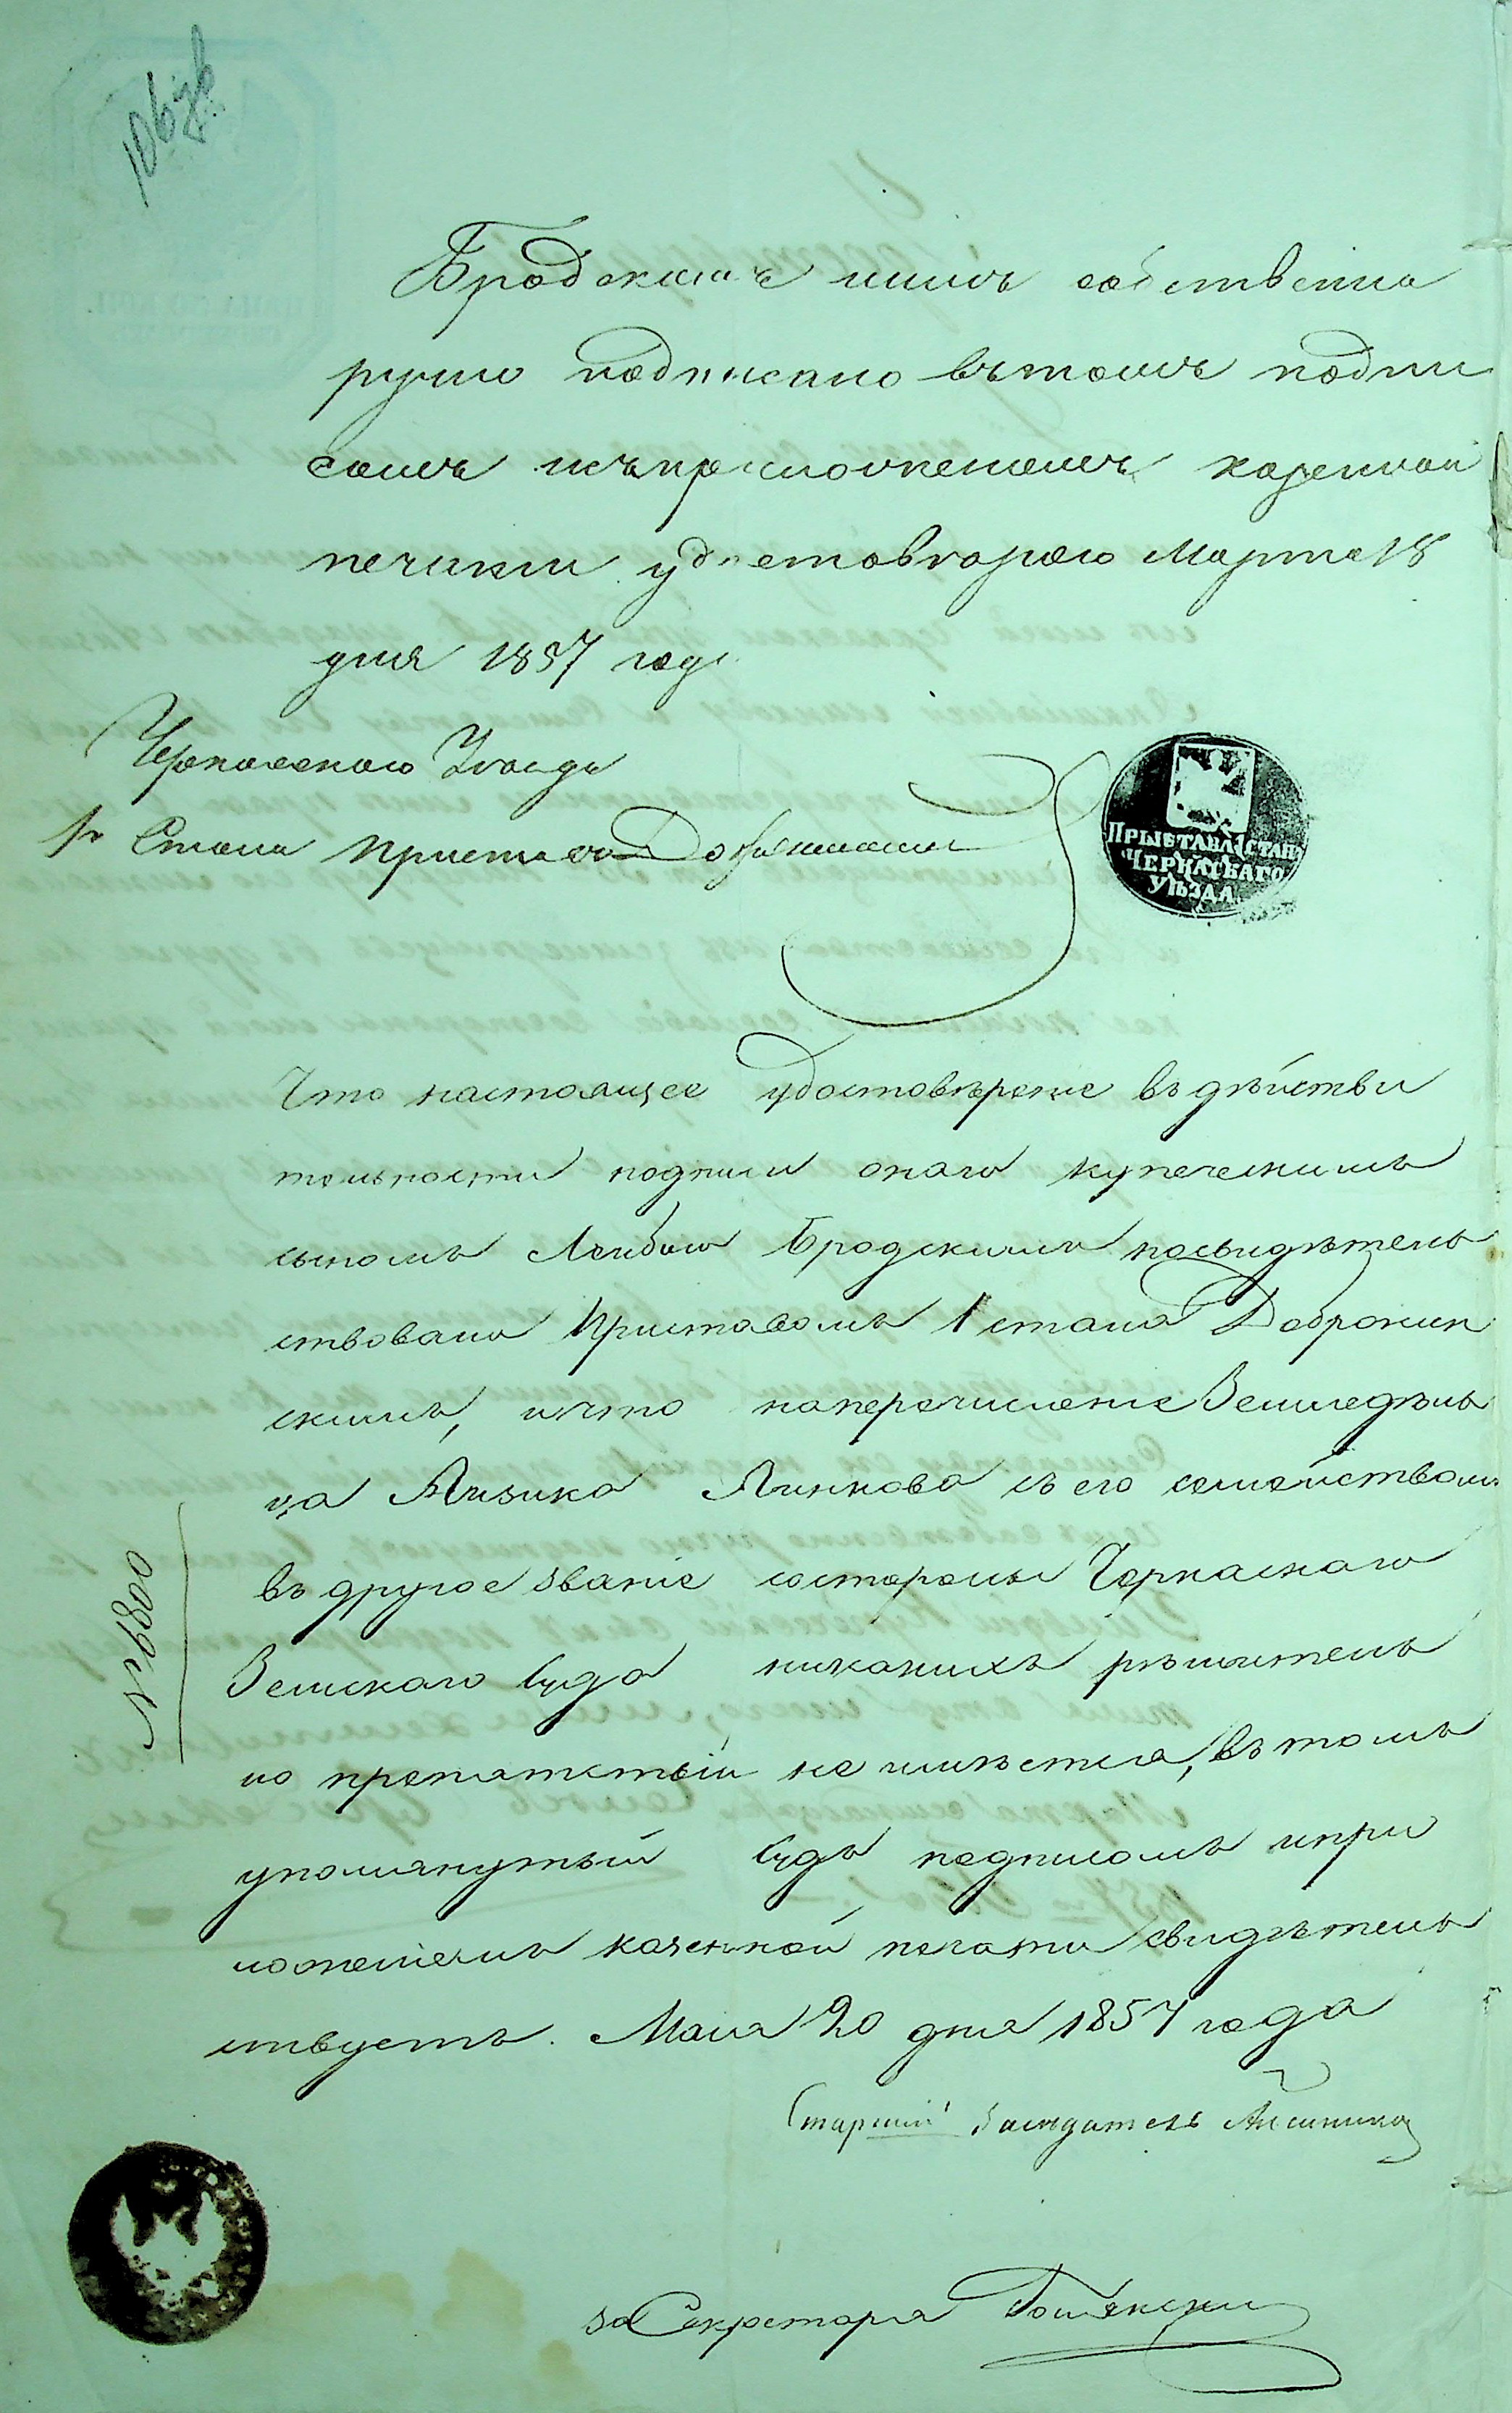 106 об
Бродскимъ симъ собственно
ручно подписано въ томъ подпи
сомъ исъприложениемъ казенной
печати удостоверяю Марта 18
дня 1857 года
Черкасскаго Уезда
1го Стана Приставъ Добрянский
ПРЫСТАВА 1 СТАНА
ЧЕРКАСЬКАГО
УѢЗДА
Что настоящее удостовѣреніе въ дѣйстви
тельности подписи онаго купеческимъ
сыномъ Лейбою Бродскимъ посвидѣтель
ствовано Приставомъ 1 стана Добрянин
скимъ, и что на перечисленіе Земледѣль
ца Айзика Линкова съ его семействомъ
въ другое званіе состороны Черкаскаго
Земскаго Суда никакихъ рѣшитель
но препятствій не имѣется, въ томъ
упомянутый Судъ подписомъ и при
ложеніемъ казенной печати свидѣтель
ствуетъ. Маія 20 дня 1857 года
№ 6800
Старшій Засѣдатель
за Секретаря